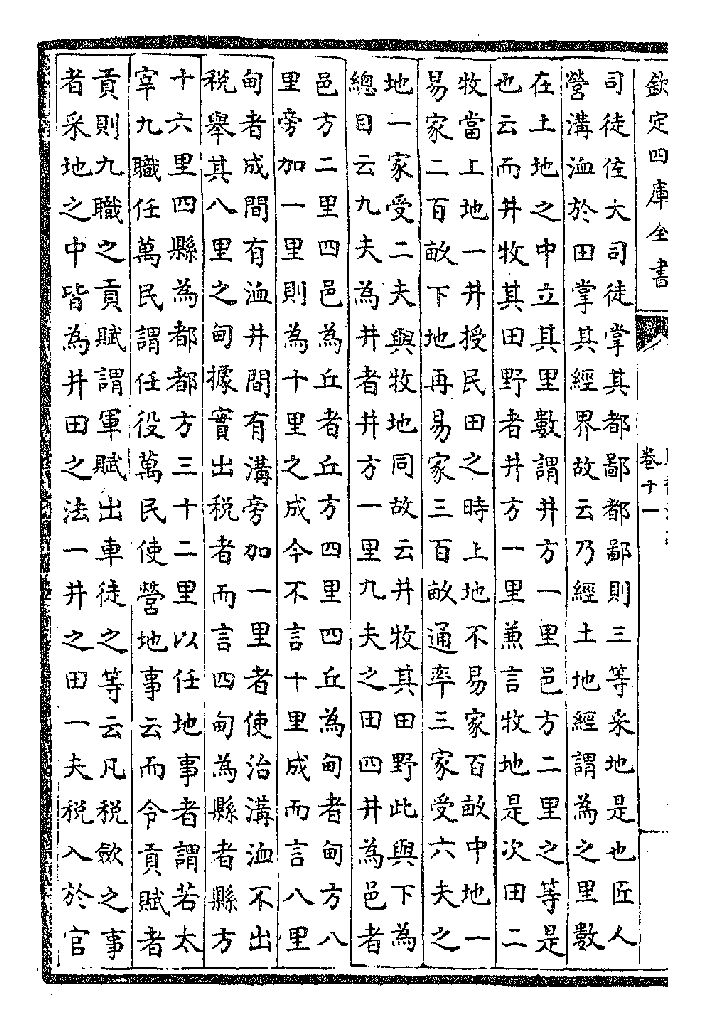 欽定四庫全書
卷十一
司徒佐大司徒掌其都鄙都鄙則三等采地是也匠人
營溝洫於田掌其經界故云乃經土地經謂為之里數
在土地之中立其里數謂井方一里邑方二里之等是
也云而井牧其田野者井方一里兼言牧地是次田二
牧當上地一井授民田之時上地不易家百畝中地一
易家二百畝下地再易家三百畝通率三家受六夫之
地一家受二夫與牧地同故云井牧其田野此與下為
總目云九夫為井者井方一里九夫之田四井為邑者
邑方二里四邑為丘者丘方四里四丘為甸者甸方八
里旁加一里則為十里之成今不言十里成而言八里
甸者成間有洫井間有溝旁加一里者使治溝洫不出
稅舉其八里之甸據實出稅者而言四甸為縣者縣方
十六里四縣為都都方三十二里以任地事者謂若太
宰九職任萬民謂任役萬民使營地事云而令貢賦者
貢則九職之貢賦謂軍賦出車徒之等云凡稅斂之事
者采地之中皆為井田之法一井之田一夫稅入於官